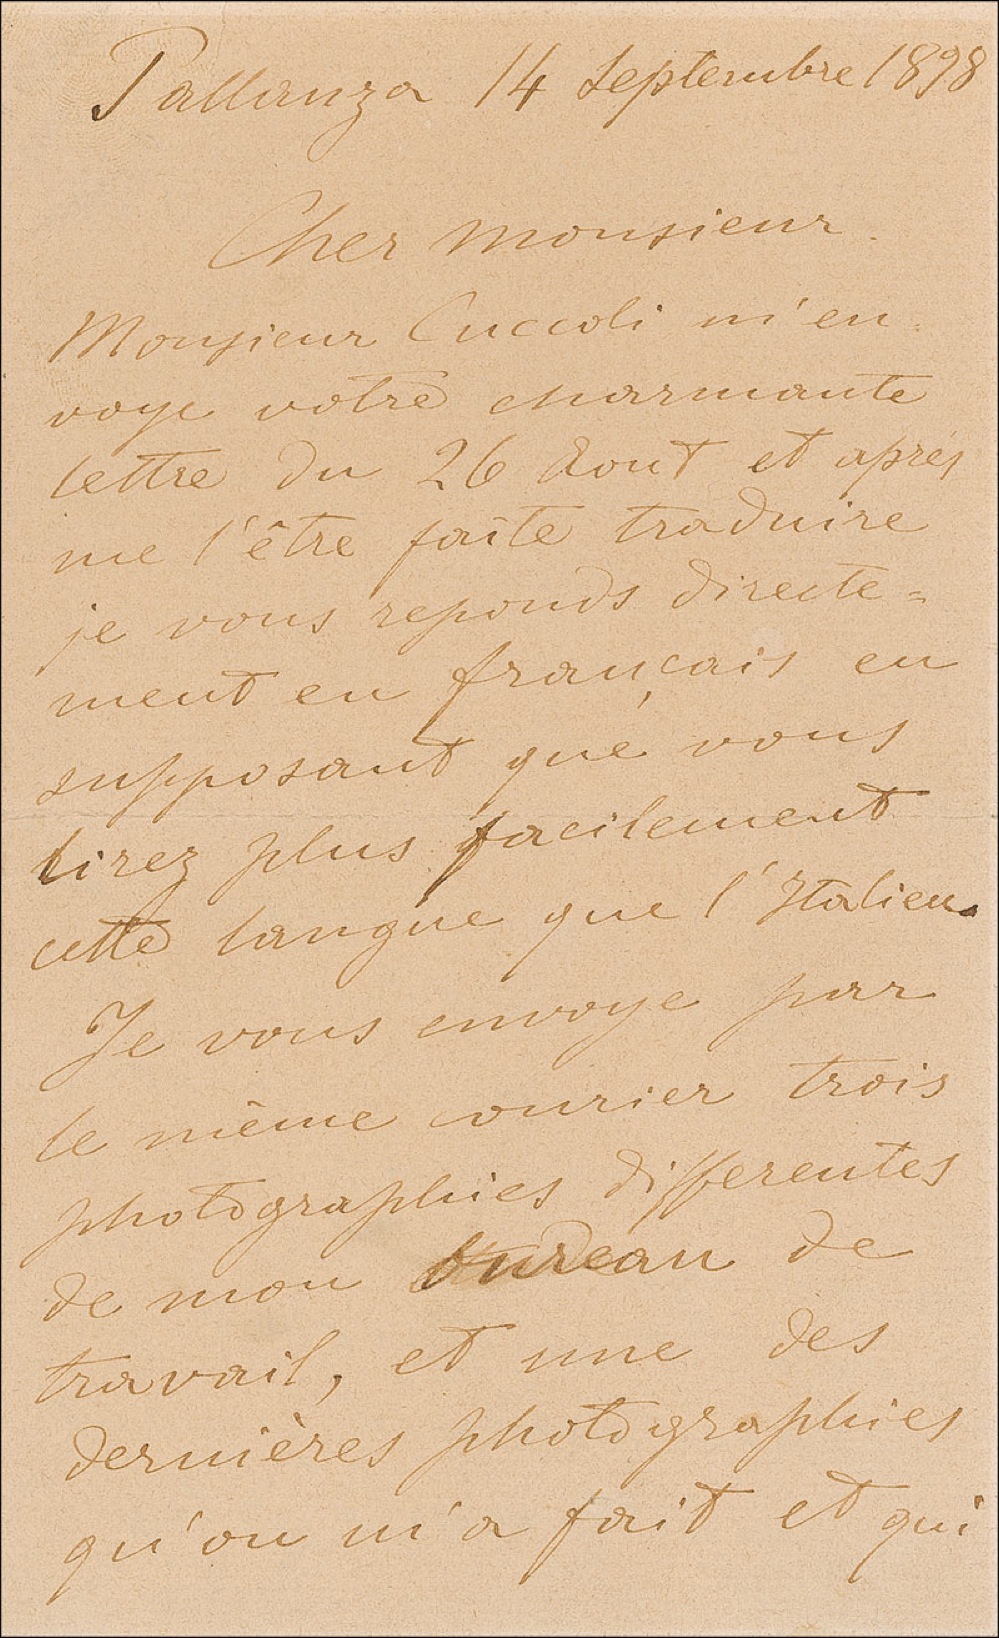 Pallanza 14 Septembre 1898
Cher Monsieur.
Monsieur Cuccoli m'en=
voye votre charmante
lettre du 26 Aout et après
me l'être faite traduire
je vous reponds directe=
ment en français en
supposant que vous
lirez plus facilement
cette langue que l'Italien.
Je vous envoye par
le même courier trois
photographies differentes
de mon bureau de
travail, et une des
dernières photographies
qu'on m'a fait et qui